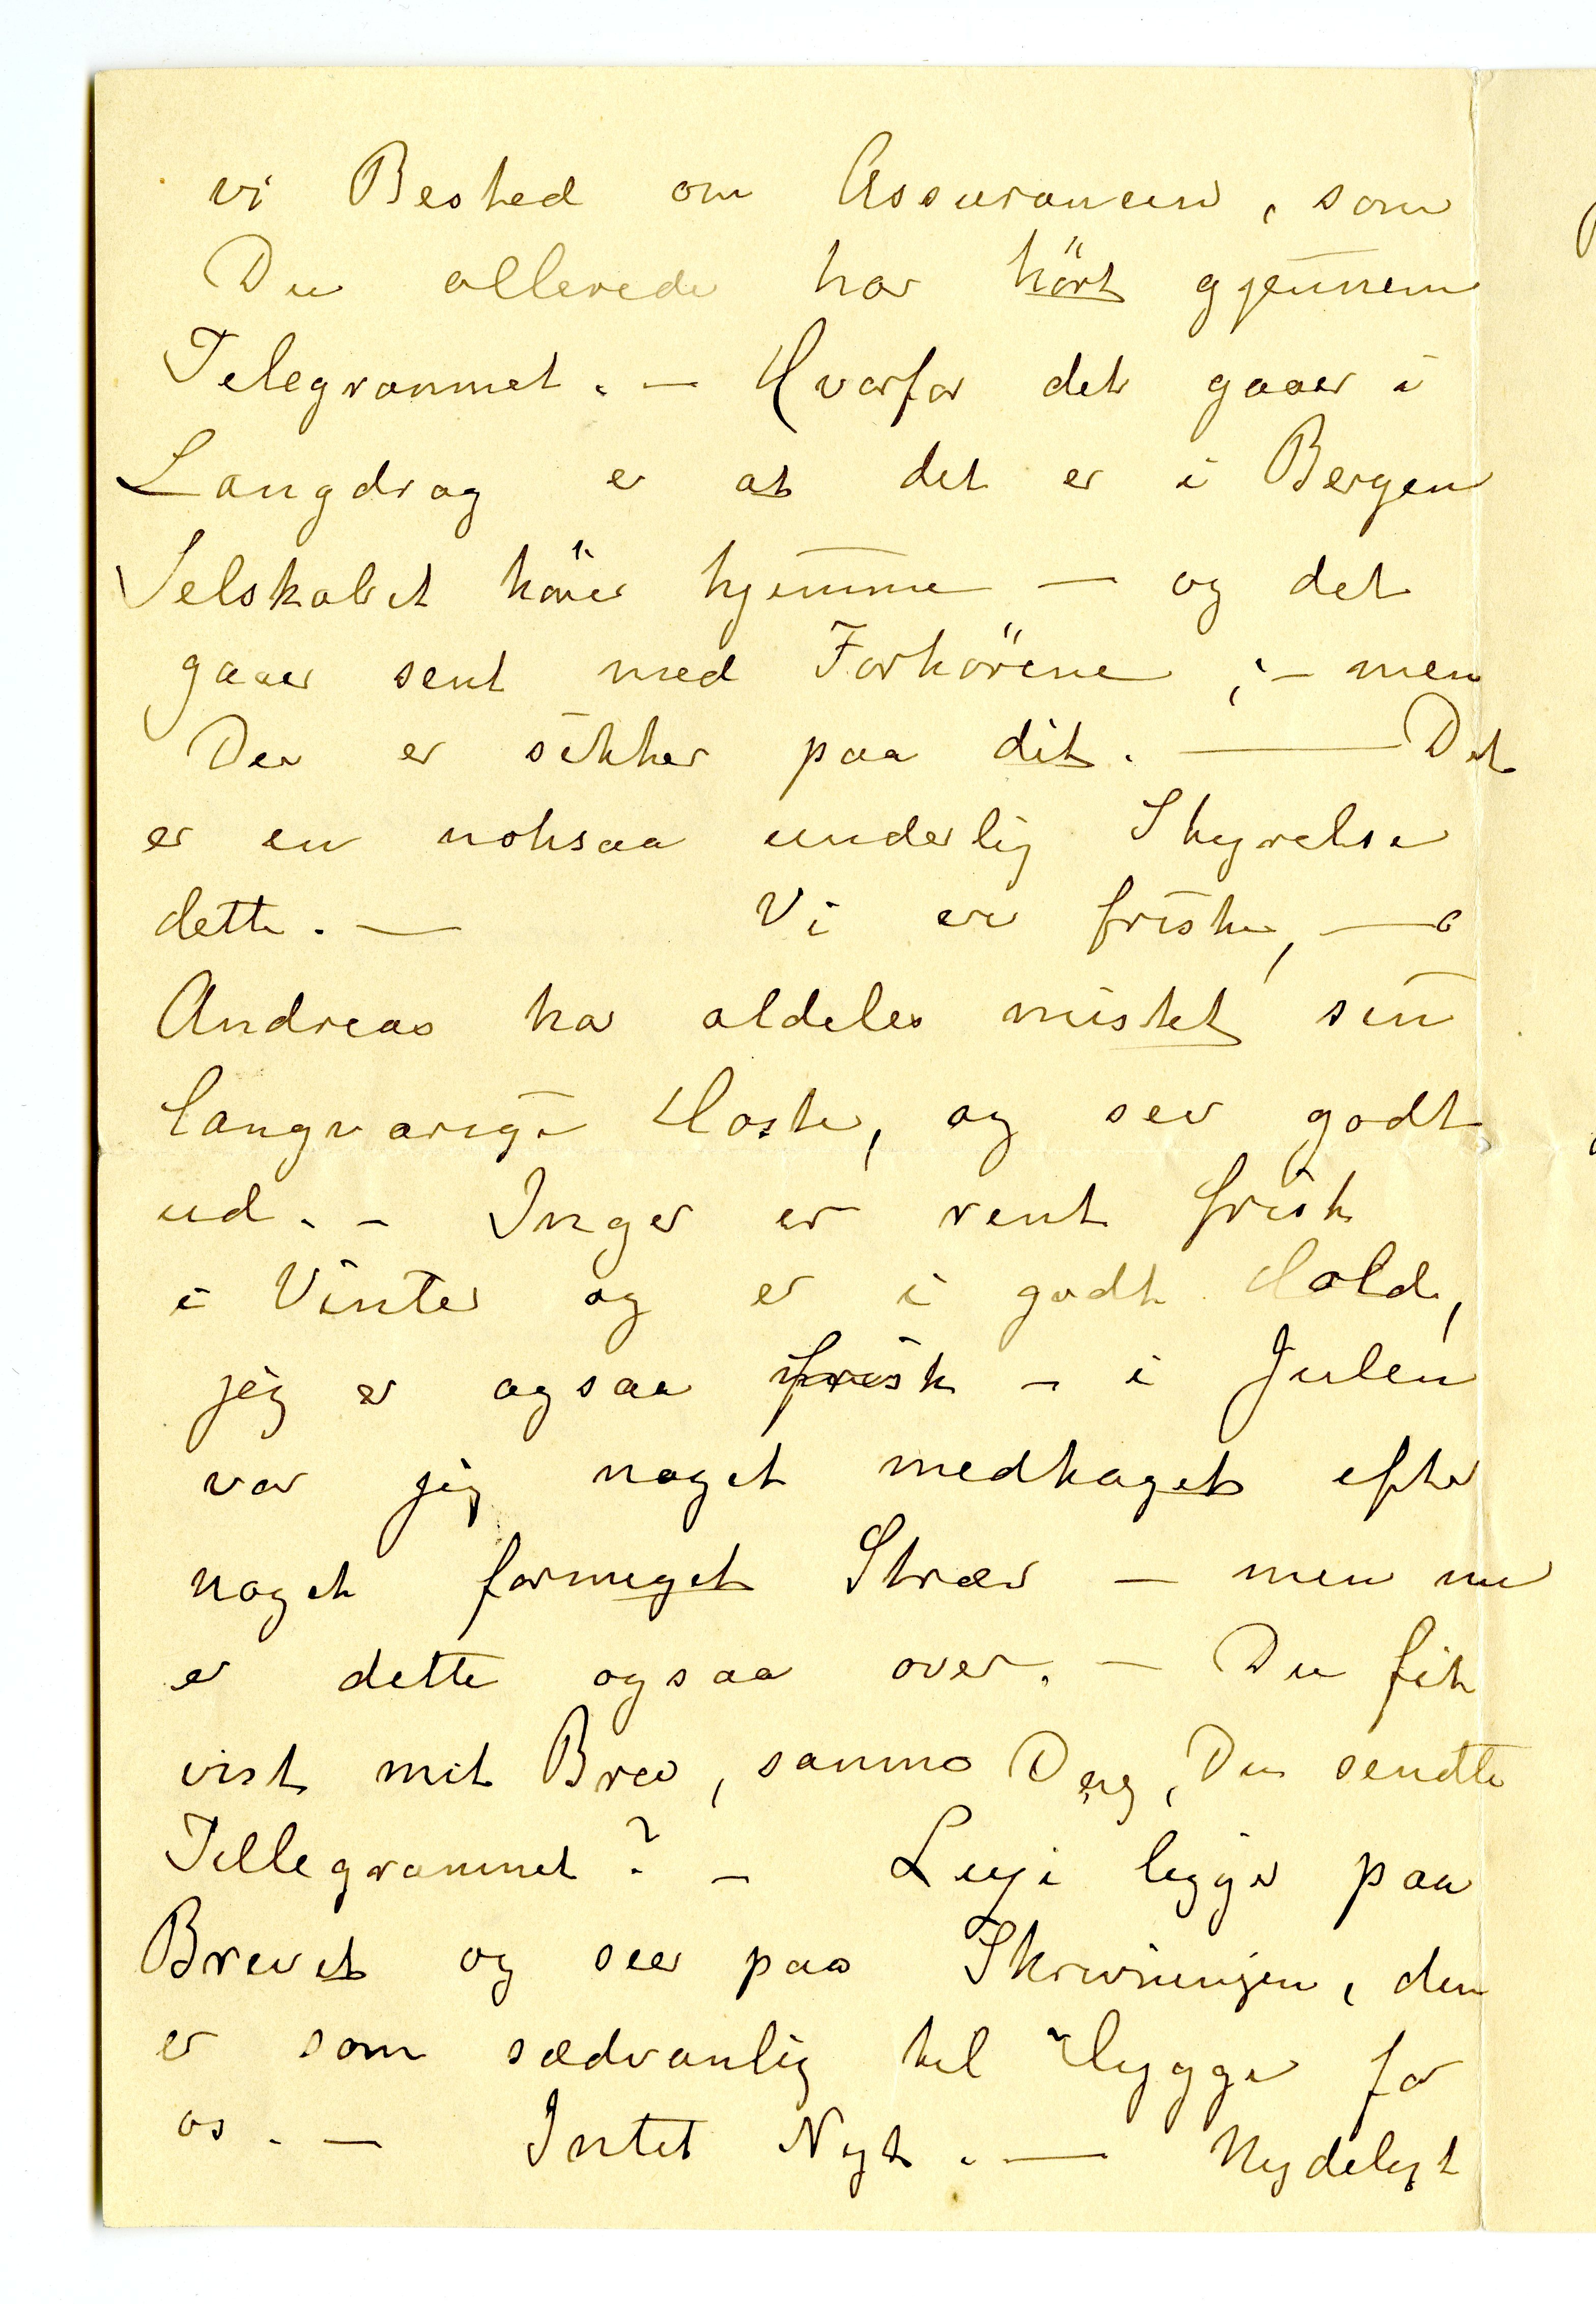 vi Besked om Assurancen, som
Du allerede har hört gjennem
Telegrammet. — Hvorfor det gaaer i
Langdrag er at det er i Bergen
Selskabet hörer hjemme — og det
gaaer sent med Forhörene ; – men
Du er sikker paa dit. — Det
er en noksaa underlig Styrelse
dette. — Vi er friske, —
Andreas har aldeles mistet sin
langvarige Hoste, og seer godt
ud. – Inger er rent frisk
i Vinter og er i godt Hold,
jeg er ogsaa frisk – i Julen
var jeg noget medtaget efter
noget formeget Stræv – men nu
er dette ogsaa over. – Du fik
vist mit Brev, samme Dag, Du sendte
Tellegrammet? – ligger paa
Brevet og seer paa Skrivningen, den
er som sædvanlig til Hygge for
os. — Intet Nyt. — Nydeligt